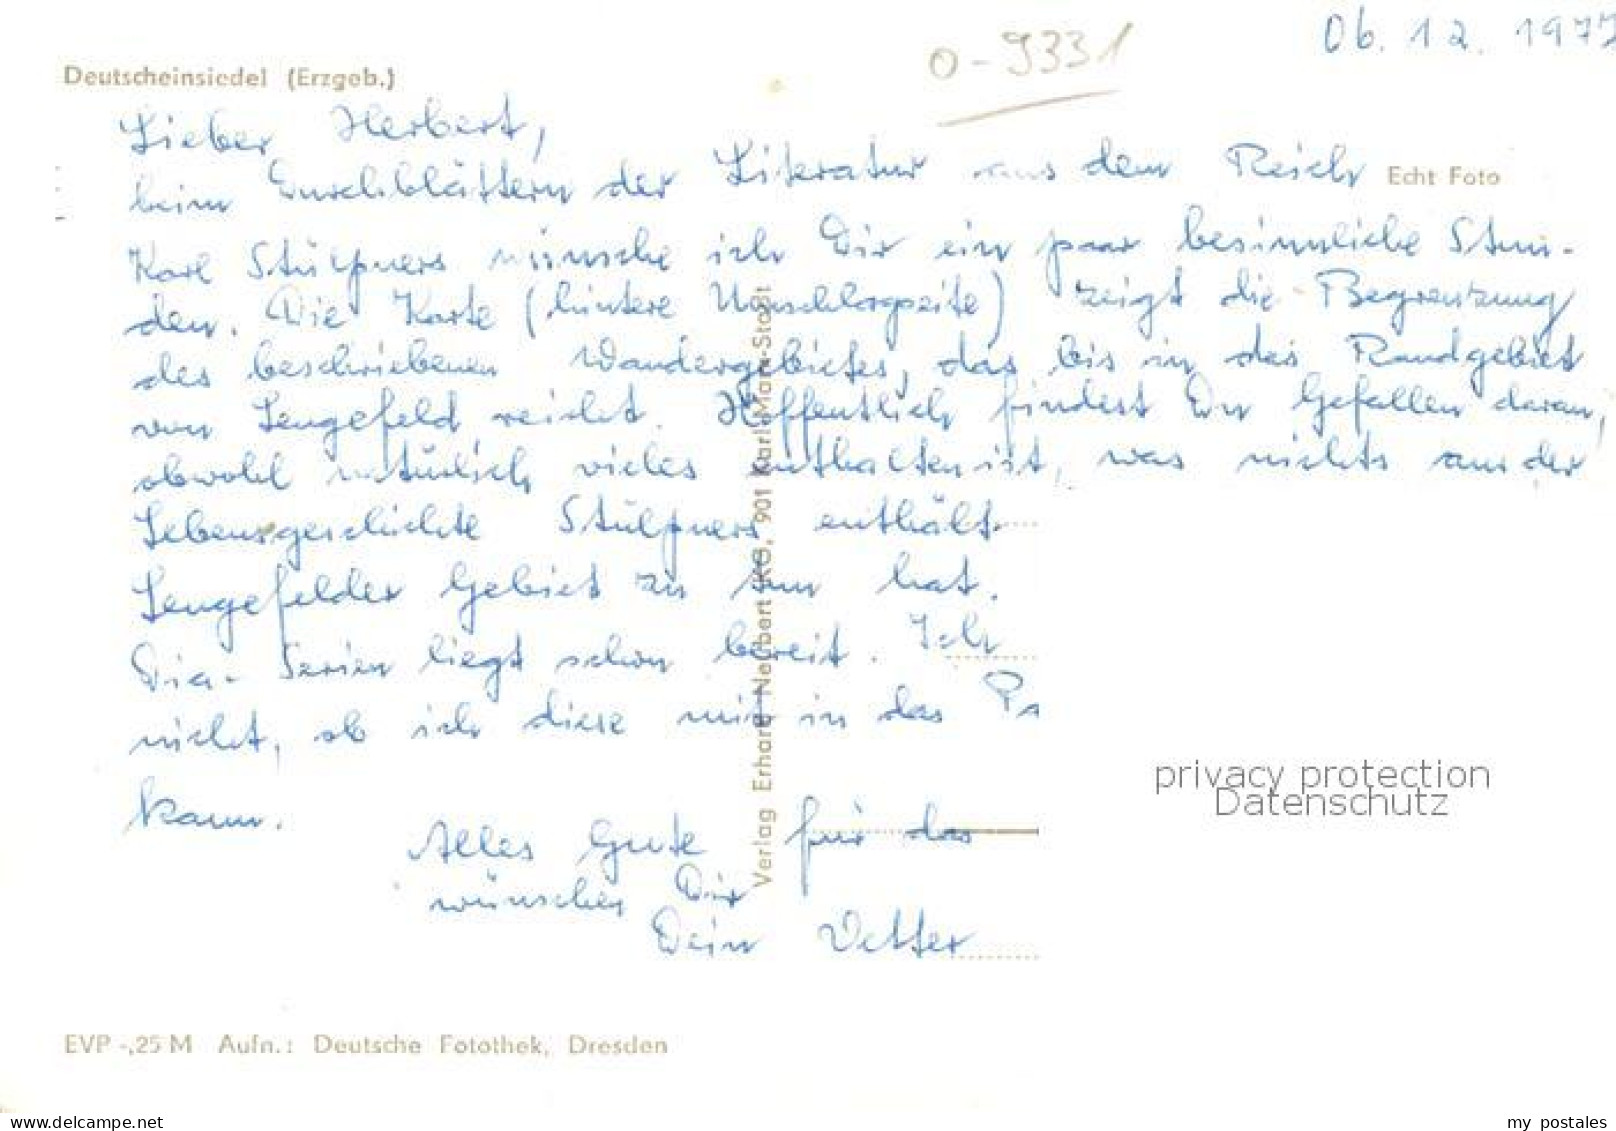 06. 12. 197
0-9331
Deutscheinsiedel (Erzgeb.)
Lieber Herbert,
beim Durchblättern der Literatur aus dem Reich
Echt Foto
Karl Stülpners wünsche ich Dir ein paar besinnliche Stun-
den. Die Karte (hintere Umschlagseite) zeigt die Begrenzung
des beschriebenen Wandergebietes, das bis in das Randgebiet
von Lengefeld reicht. Hoffentlich findest Du Gefallen daran,
obwohl natürlich vieles enthalten ist, was nichts aus der
Lebensgeschichte Stülpners enthält
Lengefelder Gebiet zu tun hat.
Dia-Serien liegt schon bereit. Ich
nicht, ob ich diese mit in das Pa
kann.
Alles Gute für das
wünschen Dir
Dein Vetter
Verlag Erhard Neubert KG, 901 Karl-Marx-Stadt
privacy protection
Datenschutz
EVP -,25 M Aufn.: Deutsche Fotothek, Dresden
www.delcampe.net
my_postales